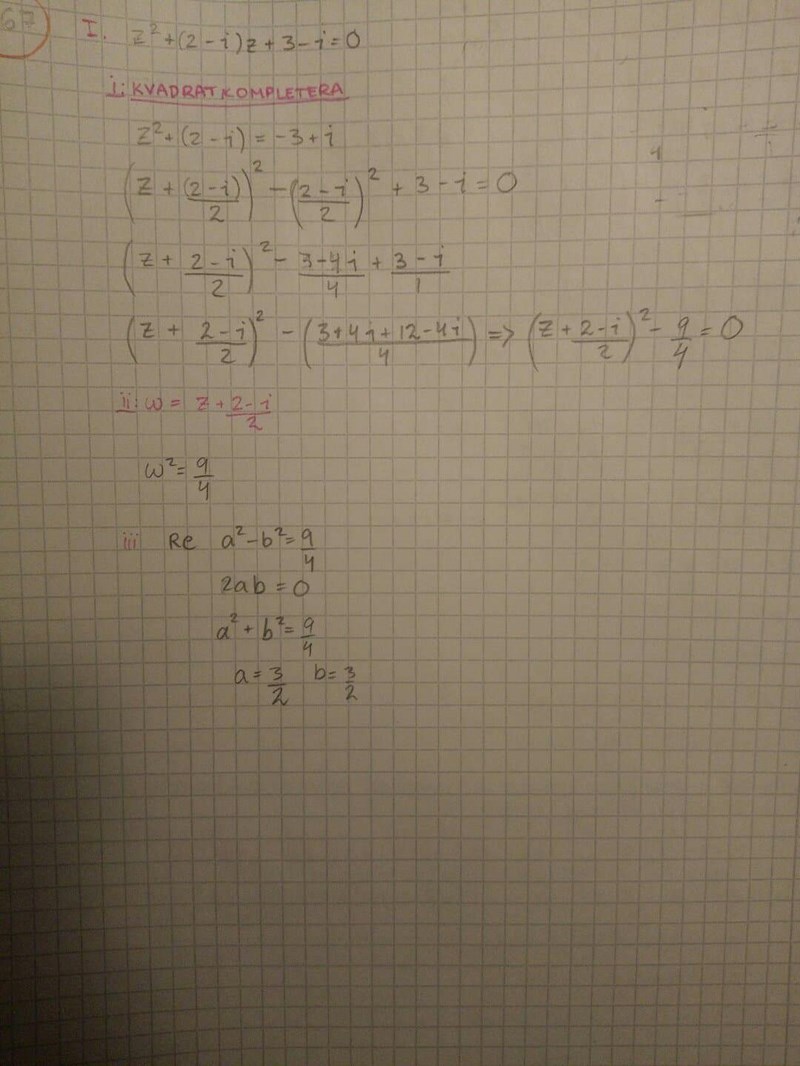 67
I. z²+(2-i)z+3-i=0
i: KVADRATKOMPLETERA
z²+(2-i)=-3+i
(z+(2-i)/2)²-(2-i/2)²+3-i=0
(z+2-i/2)²-3-4i/4+3-i/1
(z+2-i/2)²-(3+4i+12-4i/4)=>(z+2-i/2)²-9/4=0
ii: w=z+2-i/2
w²=9/4
iii Re a²-b²=9/4
2ab=0
a²+b²=9/4
a=3/2 b=3/2